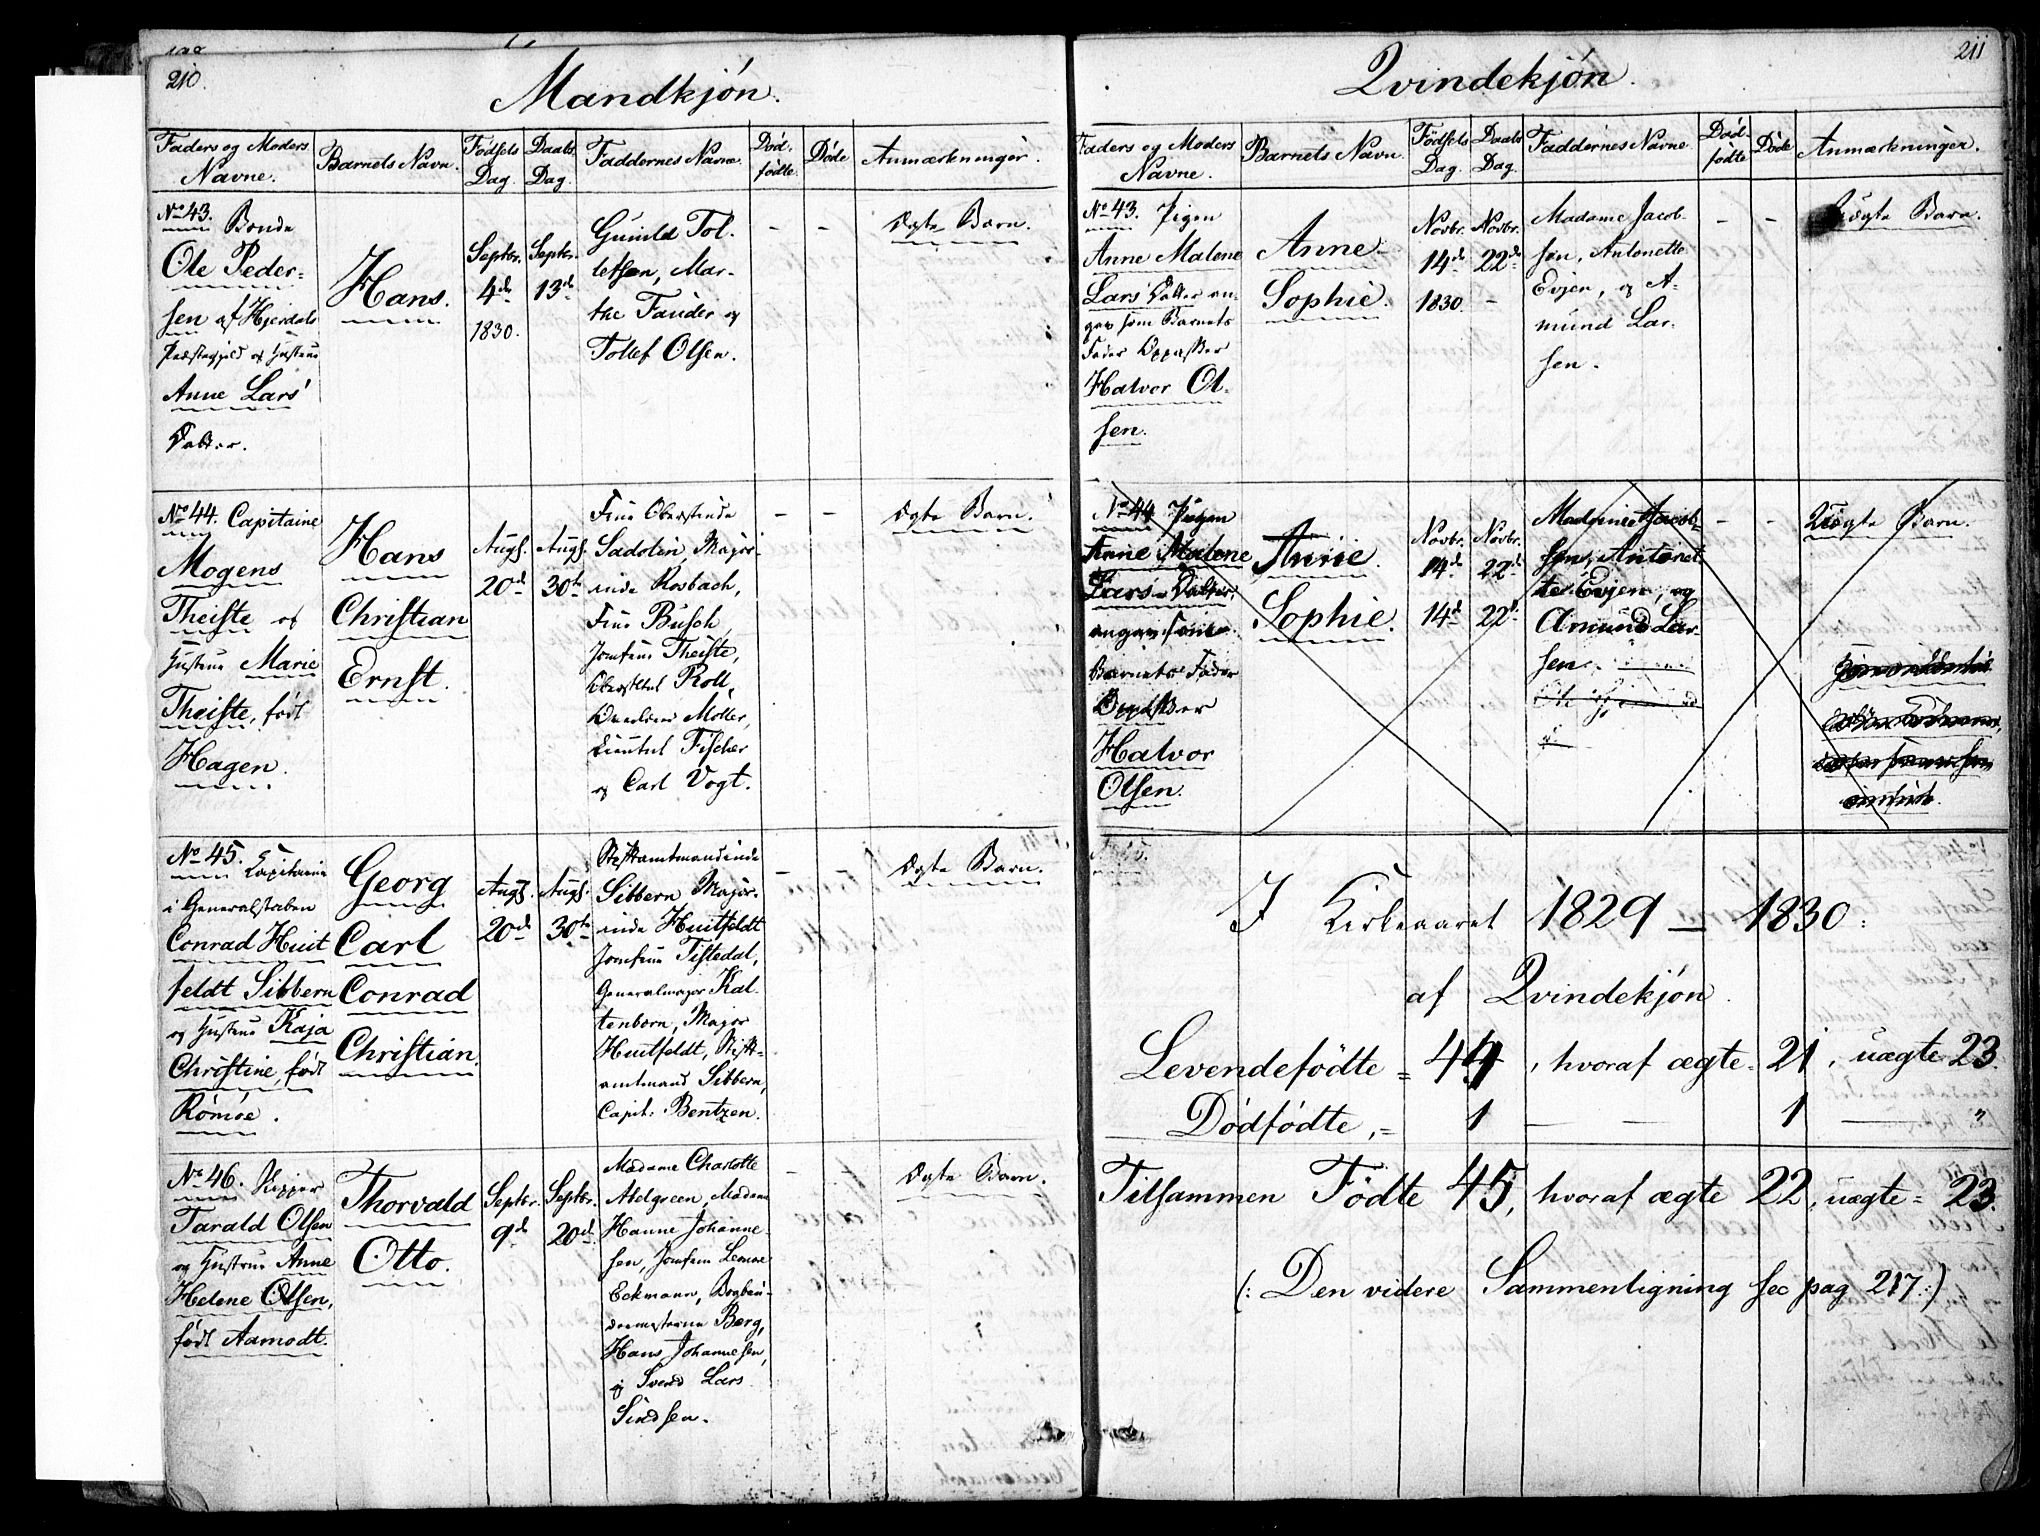 210.
Mandkjön.
Faders og Moders Navne.
Barnets Navn.
Födsels Dag.
Daabs Dag.
Faddernes Navne.
Död-födte.
Döde.
Anmærkninger.
No 43. Bonde
Ole Peder-
sen af Hjerdals
Præstegjeld og Hustrue
Anne Lars'
Datter.
Hans.
Septbr.
4de
1830.
Septbr.
13de
Gunild Tol-
lefsen, Mar-
the Fander og
Tollef Olsen.
- -
Ægte Barn.
No 44. Capitaine
Mogens
Theiste og
Hustrue Marie
Theiste, född
Hagen.
Hans
Christian
Ernst.
Augs.
20de
Augs.
30te
Frue Oberstinde
Sadolin, Major-
inde Rosbach,
Frue Busch,
Jomfrue Theiste,
Oberstltnt Roll,
Møller,
Lieutnt Fischer
og Carl Vogt.
- -
Ægte Barn.
No 45. Capitaine
i Generalstaben
Conrad Huit
feldt Sibbern
og Hustrue Kaja
Christine, född
Römoe.
Georg
Carl
Conrad
Christian.
Augs.
20de
Augs.
30te
Stiftamtmandinde
Sibbern, Major-
inde Huitfeldt
Jomfrue Tistedal,
Generalmajor Kal-
tenborn, Major
Huitfeldt, Stift-
amtmand Sibbern,
Capit: Bentzen.
- -
Ægte Barn.
No 46. Skipper
Tarald Olsen
og Hustrue Anne
Helene Olsen,
född Aamodt.
Thorvald
Otto.
Septbr.
9de
Septbr.
20de
Madame Charlotte
Aldgreen, Madame
Hanne Johanne-
sen, Jomfrue
Eckmann,
Berg,
Hans Johannesen,
og Svend Lars
Sindsen.
- -
Ægte Barn.
211
Qvindekjön.
Faders og Moders Navne.
Barnets Navn.
Födsels Dag.
Daabs Dag.
Faddernes Navne.
Död-födte
Döde
Anmærkninger.
No 43. Pigen
Anne Malene
Lars' Datter an-
gav som Barnets
Fader Oppasser
Halvor Ol-
sen.
Anne
Sophie.
Novbr.
14de
1830.
Novbr.
22de
-
Madame Jacob-
sen, Antonette
Evjen, og A-
mund Lar-
sen.
- -
Uægte Barn.
No 44 Pigen
Anne Malene
Lars Datter,
angav som
Barnets Fader
Oppasser
Halvor
Olsen.
Anne
Sophie.
Novbr.
14de
14de
Novbr.
22de
22de
Madame Jacob-
sen, Antonet-
te Evjen, og
Amund Lar-
sen.
- -
Uægte Barn.
I Kirkeaaret 1829 — 1830:
af Qvindekjön.
Levendefödte = 44, hvoraf ægte = 21, uægte 23.
Dödfödte, = 1 — — 1 — "
Tilsammen Födte 45, hvoraf ægte 22, uægte = 23.
(: Den videre Sammenligning see pag 217 :)